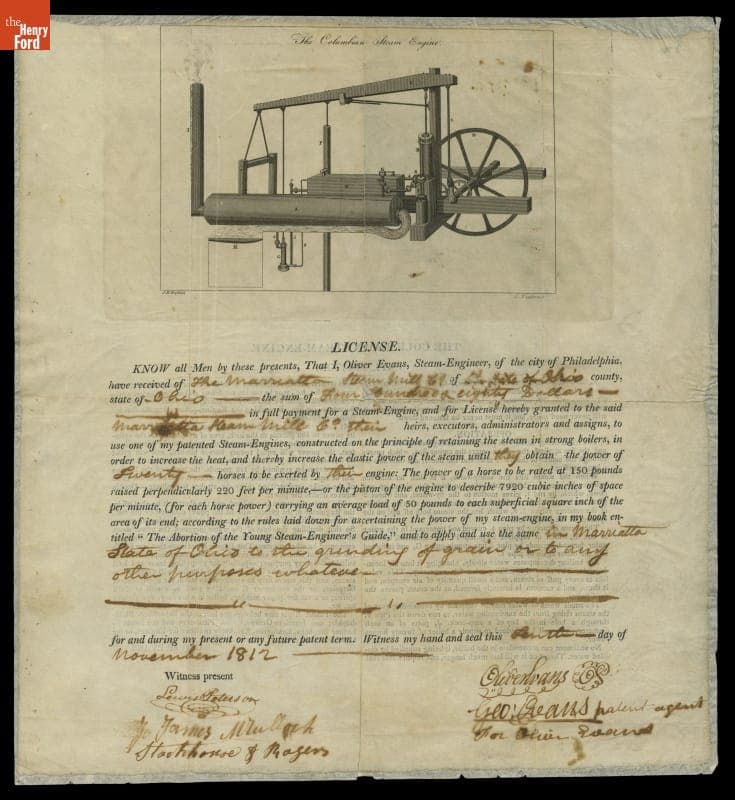 the
Henry
Ford
The Columbian Steam Engine.
LICENSE.
KNOW all Men by these presents, That I, Oliver Evans, Steam-Engineer, of the city of Philadelphia,
have received of The Marriatta Steam Mill Co of State of Ohio county,
state of Ohio the sum of Four hundred eighty Dollars
in full payment for a Steam-Engine, and for License hereby granted to the said
Marriatta Steam Mill Co. their heirs, executors, administrators and assigns, to
use one of my patented Steam-Engines, constructed on the principle of retaining the steam in strong boilers, in
order to increase the heat, and thereby increase the elastic power of the steam until they obtain the power of
Twenty horses to be exerted by their engine: The power of a horse to be rated at 150 pounds
raised perpendicularly 220 feet per minute,—or the piston of the engine to describe 7920 cubic inches of space
per minute, (for each horse power) carrying an average load of 50 pounds to each superficial square inch of the
area of its end; according to the rules laid down for ascertaining the power of my steam-engine, in my book en-
titled "The Abortion of the Young Steam-Engineer's Guide," and to apply and use the same in Marriatta
State of Ohio to the grinding of grain or to any
other purposes whatever
for and during my present or any future patent term. Witness my hand and seal this day of
November 1812
Witness present
Oliver Evans
Lewis Peterson
Geo: Evans patent agent
James McCulloch
for Oliver Evans
Stackhouse & Rogers